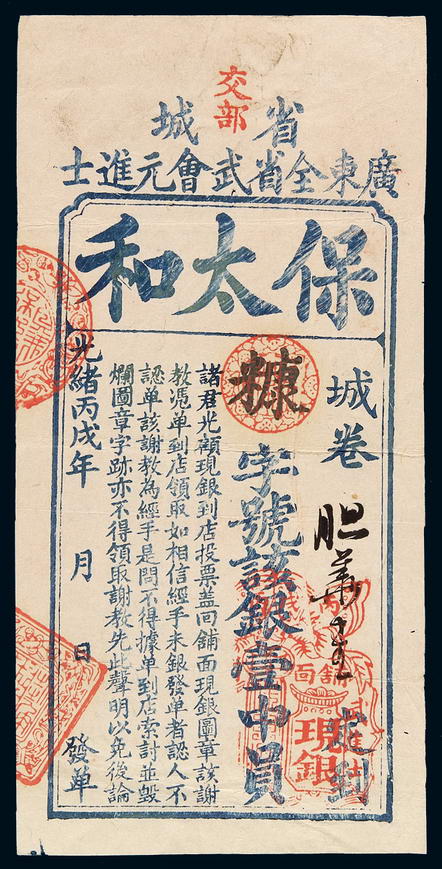 交部
省城
廣東全省武會元進士
保太和
城卷 到
糠字號該銀壹中員
諸君光顧現銀到店投票蓋回舖面現銀圖章該謝
教憑單到店領取如相信經手未銀發單者認人不
認單該謝教為經手是問不得據單到店索討並毀
爛圖章字跡亦不得領取謝教先此聲明以免後論
光緒丙戌年 月 日 發單
舖面
現銀